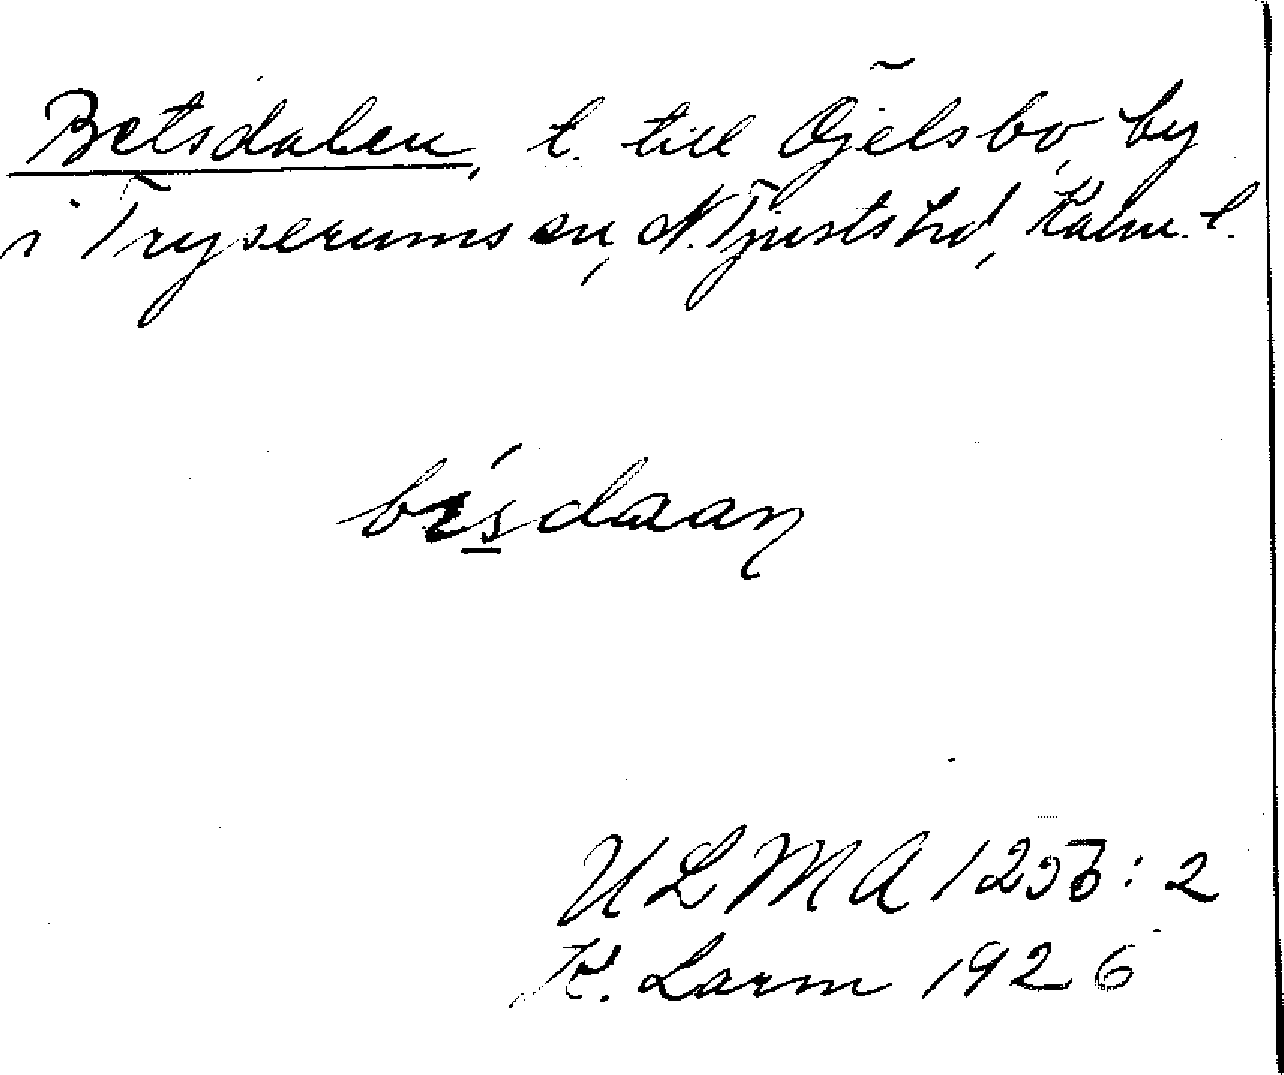 Betsdalen, t. till Öjelsbo, by
i Tryserums sn, N. Tjusts hd, Kalm. l.
bísdaan
ULMA 1253:2
K. Larm 1926